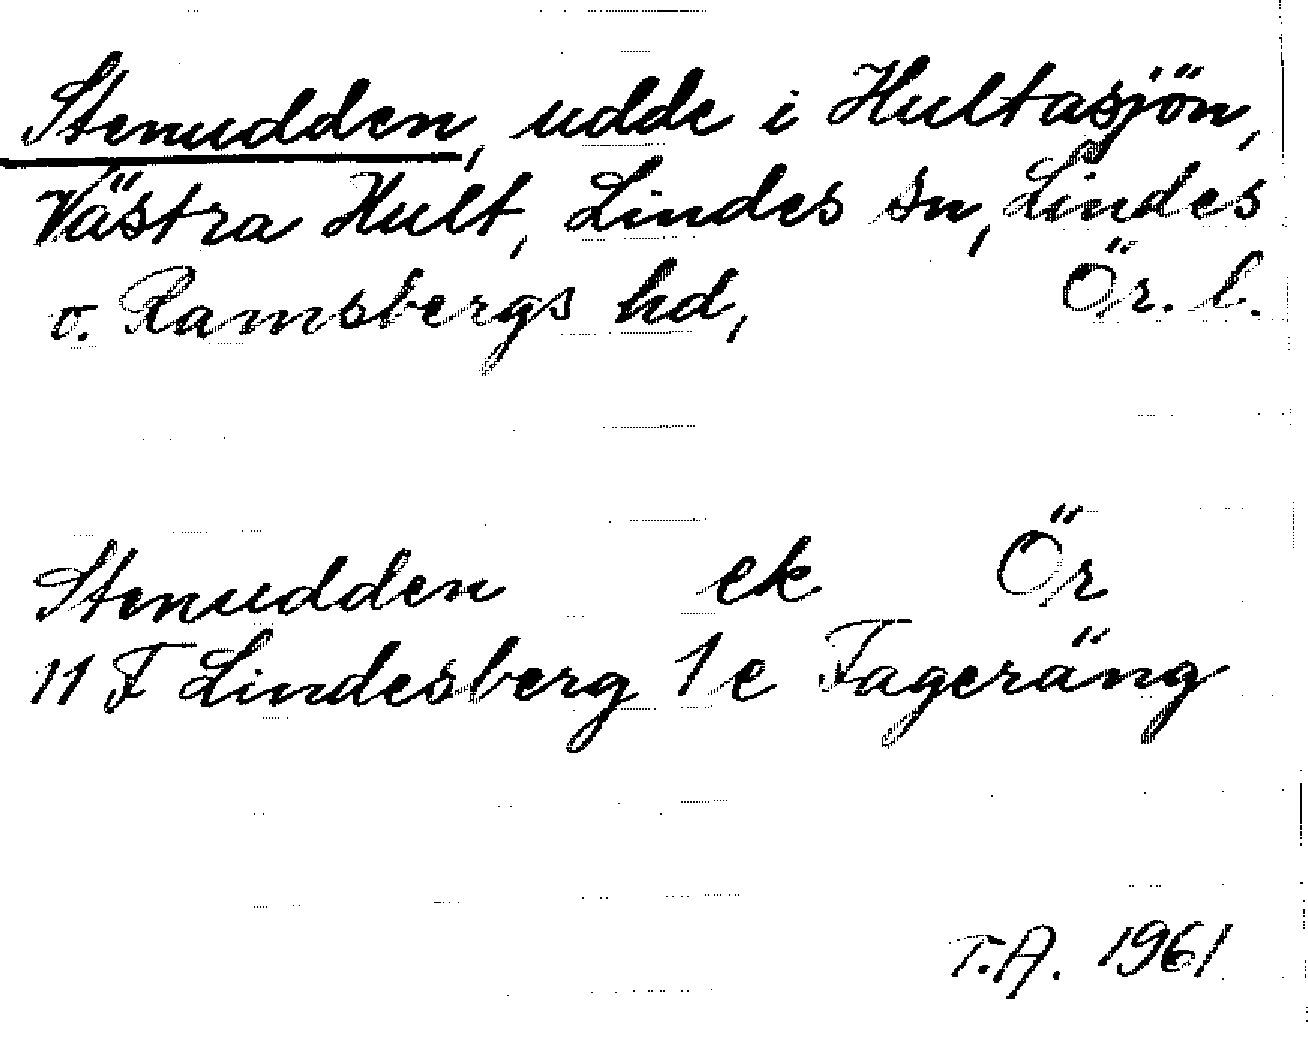 Stenudden, udde i Hultasjön,
Västra Hult, Lindes sn, Lindes
o. Ramsbergs hd, Ör. l.
Stenudden ek Ör
11 F Lindesberg 1 e Fageräng
T.A. 1961